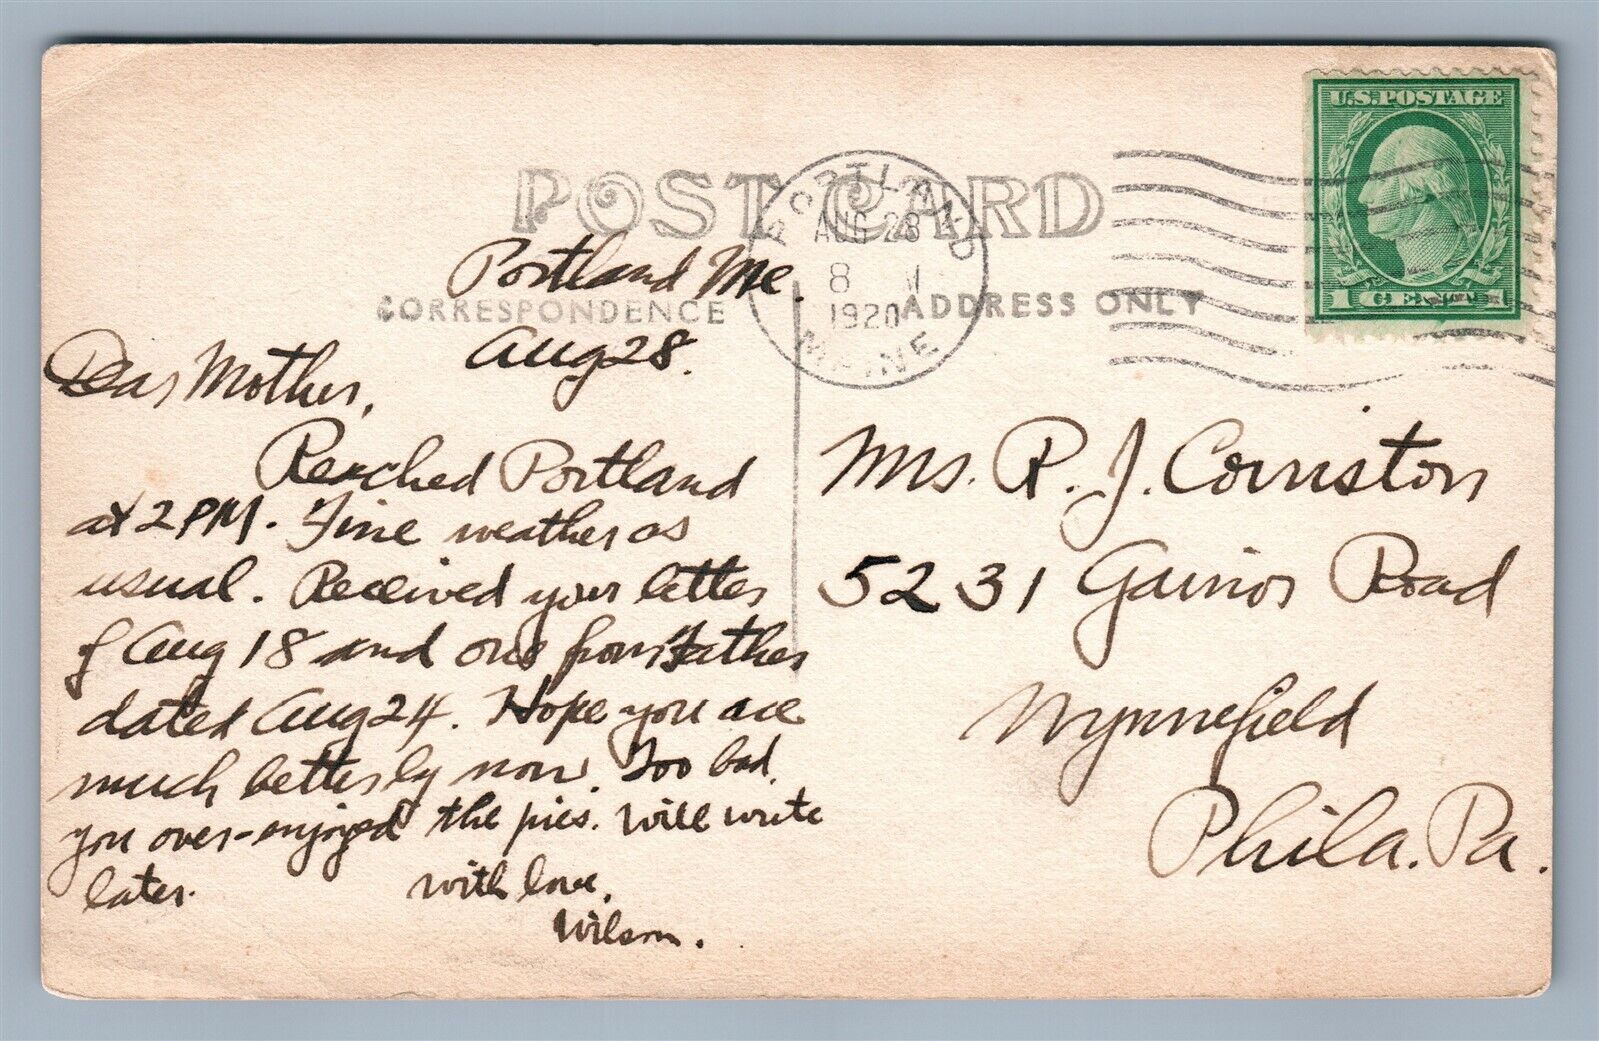 POST CARD
CORRESPONDENCE
ADDRESS ONLY
PORTLAND
AUG 28
8 M
1920
MAINE
U.S. POSTAGE
1 CENT
Portland Me.
Aug 28.
Dear Mother,
Reached Portland
at 2 PM. Fine weather as
usual. Received your letter
of Aug 18 and one from Father
dated Aug 24. Hope you are
much better by now. Too bad
you over-enjoyed the pies. Will write
later.
With love,
Wilson.
Mrs. R. J. Corriston
5231 Gainor Road
Wynnefield
Phila. Pa.